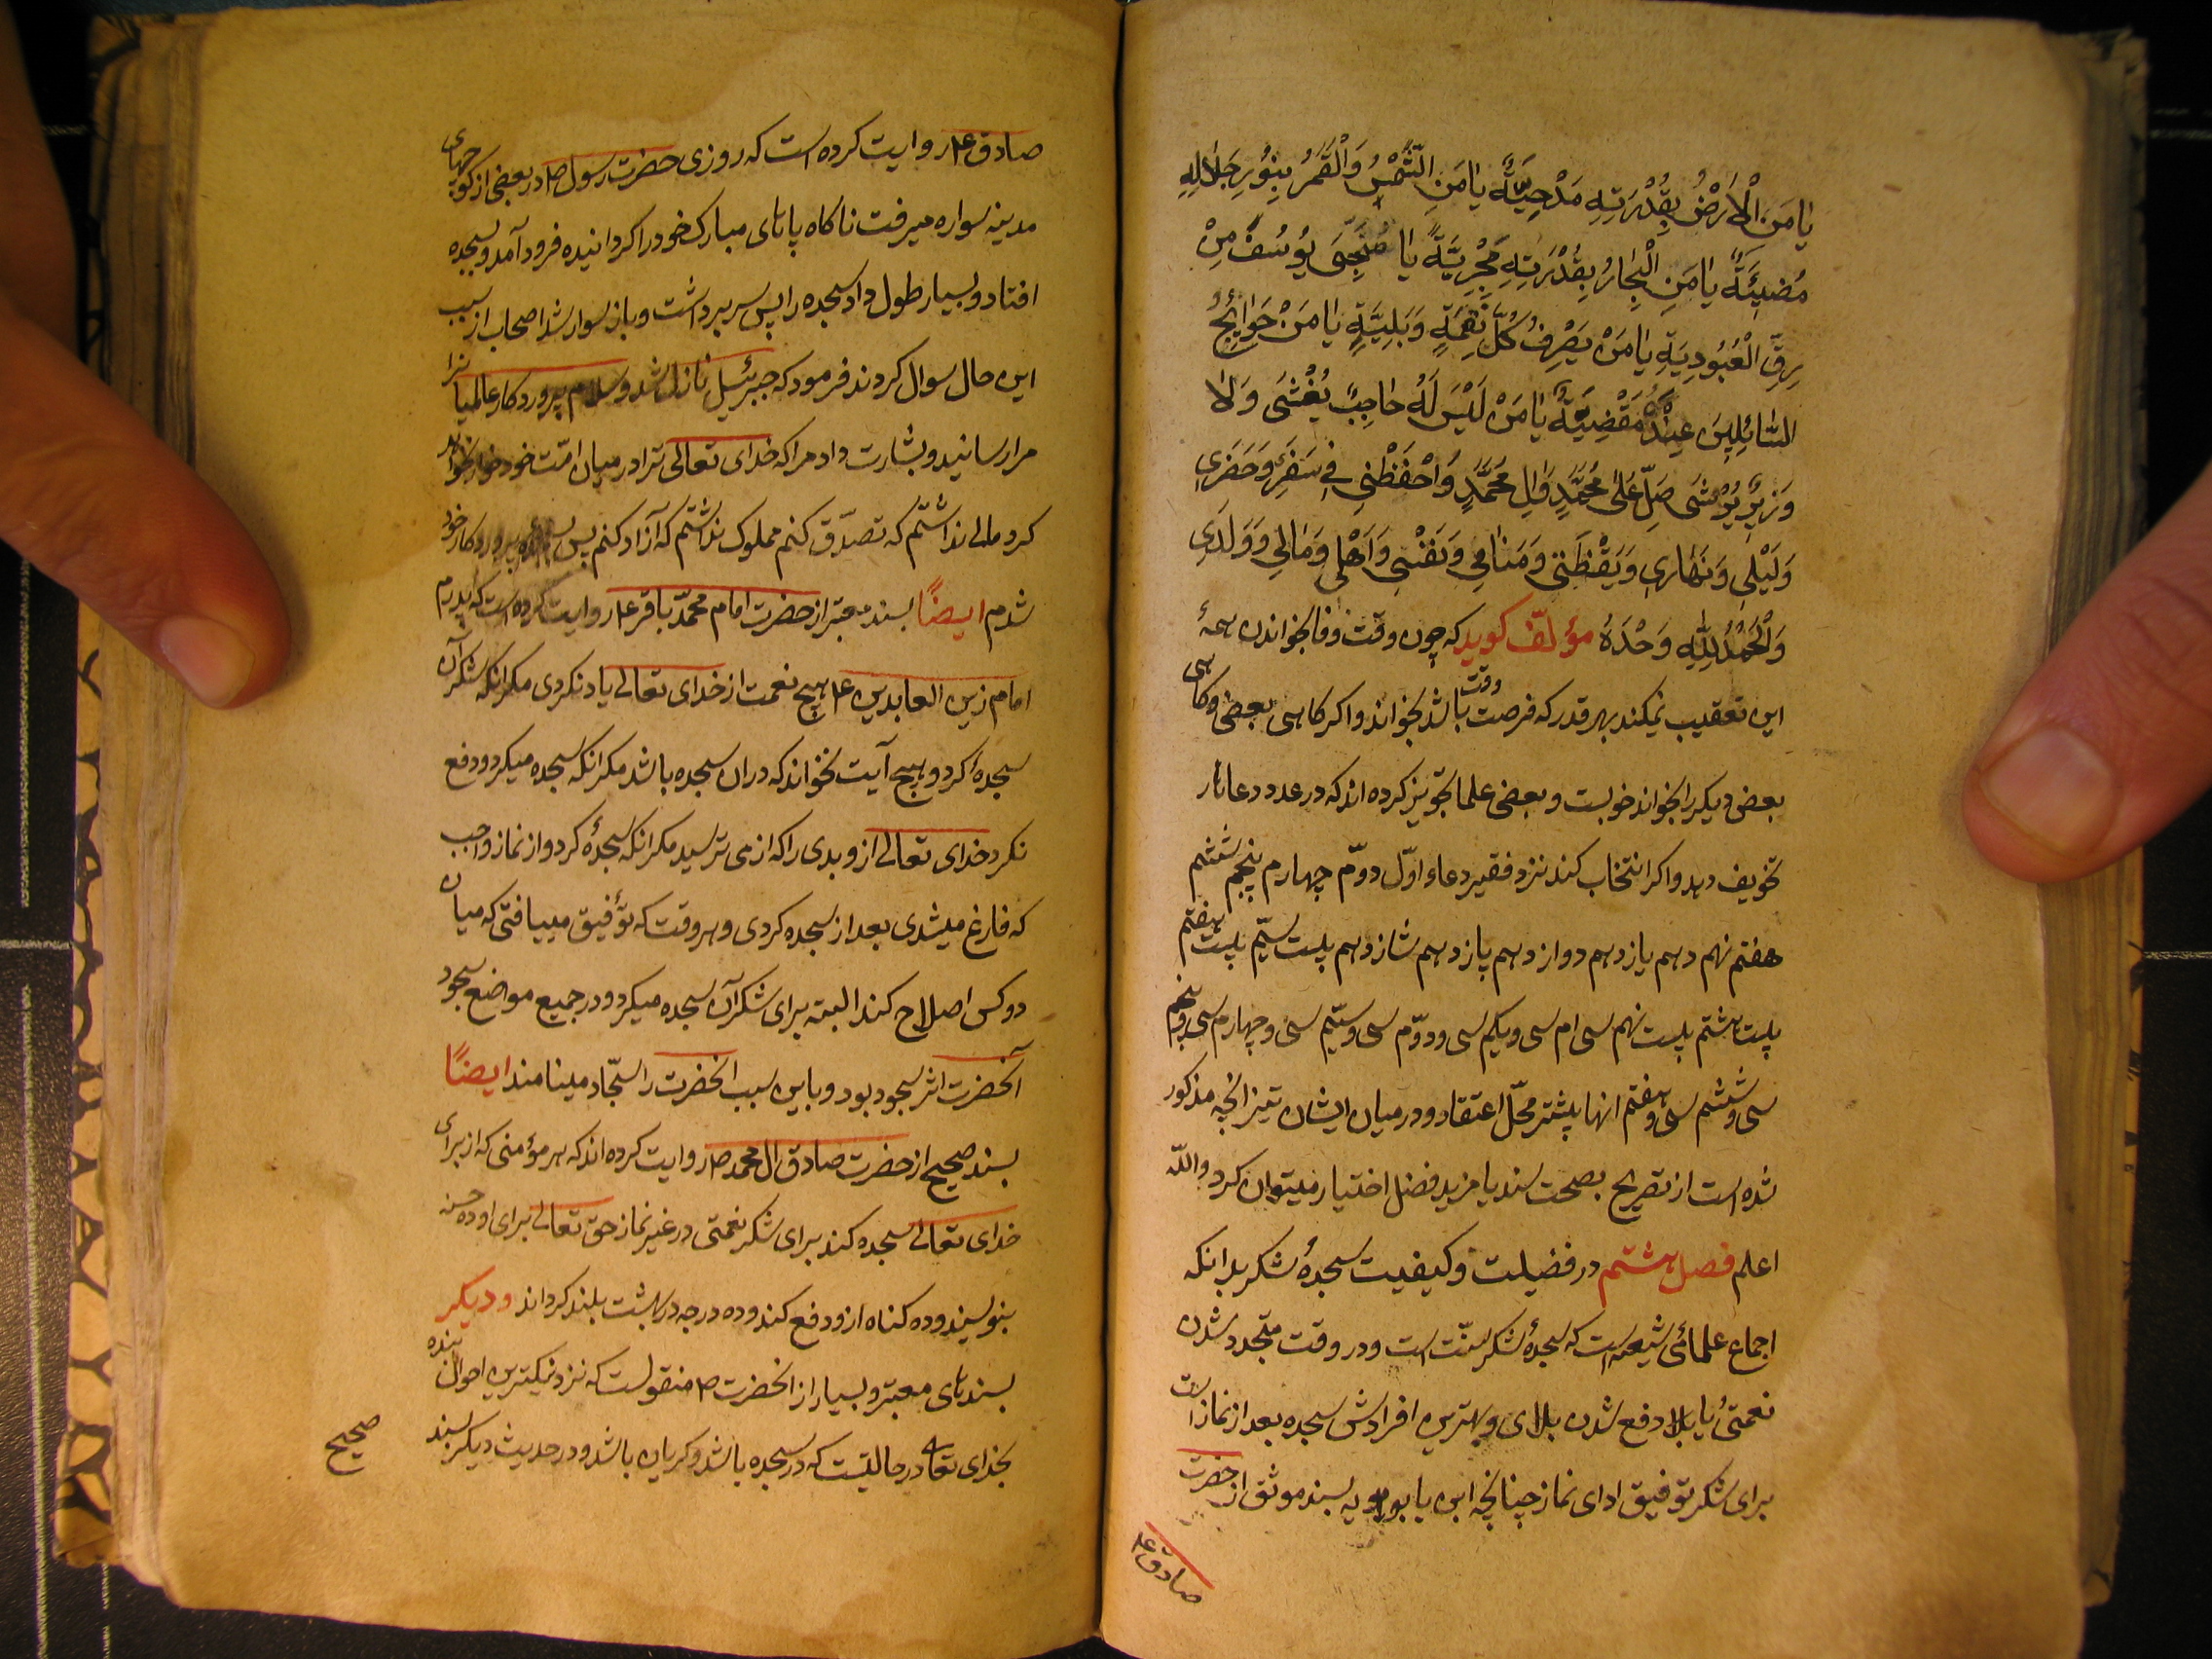 یا مَنِ الْاَرْضُ بِقُدْرَتِهِ مَدْحِیَّةٌ یا مَنِ الشَّمْسُ وَالْقَمَرُ بِنُورِ جَلالِهِ
مُضیئَةٌ یا مَنِ الْبِحارُ بِقُدْرَتِهِ مَجْرِیَّةٌ یا مُنْجِیَ یُوسُفَ مِنْ
رِقِّ الْعُبُودِیَةِ یا مَنْ یَصْرِفُ کُلَّ نِقْمَةٍ وَبَلِیَّةٍ یا مَنْ حَوائِجُ
السّائِلینَ عِنْدَهُ مَقْضِیَّةٌ یا مَنْ لَیْسَ لَهُ حاجِبٌ یُغْشَی وَلا
وَزیرٌ یُرْشَی صَلِّ عَلی مُحَمَّدٍ وَالِ مُحَمَّدٍ وَاحْفَظْنی فی سَفَری وَحَضَری
وَلَیْلی وَنَهاری وَیَقْظَتی وَمَنامی وَنَفْسی وَاَهْلی وَمالی وَوَلَدی
وَالْحَمْدُ لِلّهِ وَحْدَهُ مؤلّف کوید که چون وقت وفا بخواندن همهٔ
این تعقیب نمیکند بهر قدر که فرصت وقت باشد بخواند و اکر کاهی بعضی و کاهی
بعض دیکر را بخواند خوبست و بعضی علما تجویز کرده اند که در عدد دعاها را
تخویف دهد و اکر انتخاب کند نزد فقیر دعاء اوّل دوّم چهارم پنجم ششم
هفتم نهم دهم یازدهم دوازدهم پازدهم شازدهم بیست سیّم بیست هفتم
بیست هشتم بیست نهم سی ام سی و یکم سی و دوّم سی و سیّم سی و چهارم سی و پنجم
سی و ششم سی و هفتم انها بیشتر محلّ اعتقاد و در میان ایشان نیز انچه مذکور
شده است از تصریح بصحت سند یا مزید فضل اختیار میتوان کرد واللّه
اعلم فصل هشتم در فضیلت و کیفیت سجدهٔ شکر بدانکه
اجماع علمائی شیعه است که سجدهٔ شکر سنّت است و در وقت متجدد شدن
نعمتی یا بلا دفع شدن بلای و بهترین افرادش سجده بعد از نماز است
برای شکر توفیق ادای نماز چنانچه ابن بابویه بسند موثق از حضرت
صادق ع
صادق ع روایت کرده است که روزی حضرت رسول ص در بعضی از کوچهای
مدینه سواره میرفت ناکاه پاهای مبارک خود را کردانیده فرود آمد و بسجده
افتاد و بسیار طول داد سجده را پس سر برداشت و باز سوار شد اصحاب از سبب
این حال سوال کردند فرمود که جبرئیل نازل شد و سلام پرورد کار عالمیانرا
مرا رسانید و بشارت داد مرا که خدای تعالی ترا در میان امّت خود خوار نخواهد
کرد مالی نداشتم که تصدّق کنم مملوک نداشتم که آزاد کنم پس سجده پرورد کار خود
شدم ایضًا بسند معتبر از حضرت امام محمّد باقر ع روایت کرده است که پدرم
امام زین العابدین ع هیچ نعمت از خدای تعالی یاد نکردی مکر انکه شکر آن
سجدهٔ کرد و هیچ آیت نخواند که دران سجده باشد مکر انکه سجده میکرد و دفع
نکرد خدای تعالی ازو بدی را که از می ترسید مکر انکه سجدهٔ کرد و از نماز واجب
که فارغ میشدی بعد از سجده کردی و هر وقت که توفیق مییافتی که میان
دو کس اصلاح کند البته برای شکر آن سجده میکرد و در جمیع مواضع سجود
آنحضرت اثر سجود بود و باین سبب انحضرت را سجّاد مینامند ایضًا
بسند صحیح از حضرت صادق ال محمد ص روایت کرده اند که هر مؤمنی که از برای
خدای تعالی سجده کند برای شکر نعمتی در غیر نماز حق تعالی برای او ده حسنه
بنویسد و ده کناه ازو دفع کند و ده درجه در بهشت بلند کرداند و دیکر
بسندهای معتبر و بسیار از انحضرت ص منقولست که نزدیکترین احوال بنده
بخدای تعالی در حالتیست که در سجده باشد و کریان باشد و در حدیث دیکر بسند
صحیح